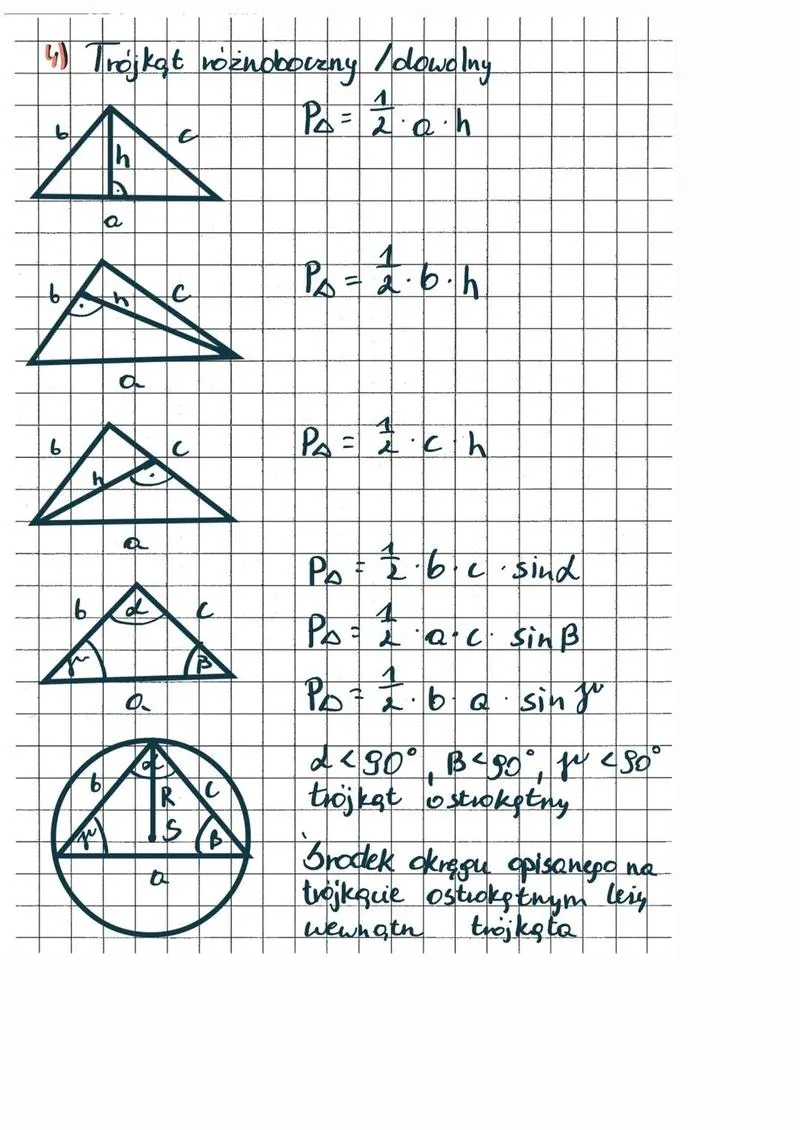 4) Trójkąt różnoboczny /dowolny
b
h
c
a
P△ = 1/2 · a · h
b
h
c
a
P△ = 1/2 · b · h
b
h
c
a
P△ = 1/2 · c · h
b
α
c
γ
β
a
P△ = 1/2 · b · c · sinα
P△ = 1/2 · a · c · sinβ
P△ = 1/2 · b · a · sin γ
b
α
R
c
γ
S
β
a
α < 90°, β < 90°, γ < 90°
trójkąt ostrokątny
Środek okręgu opisanego na
trójkącie ostrokątnym leży
wewnątrz trójkąta